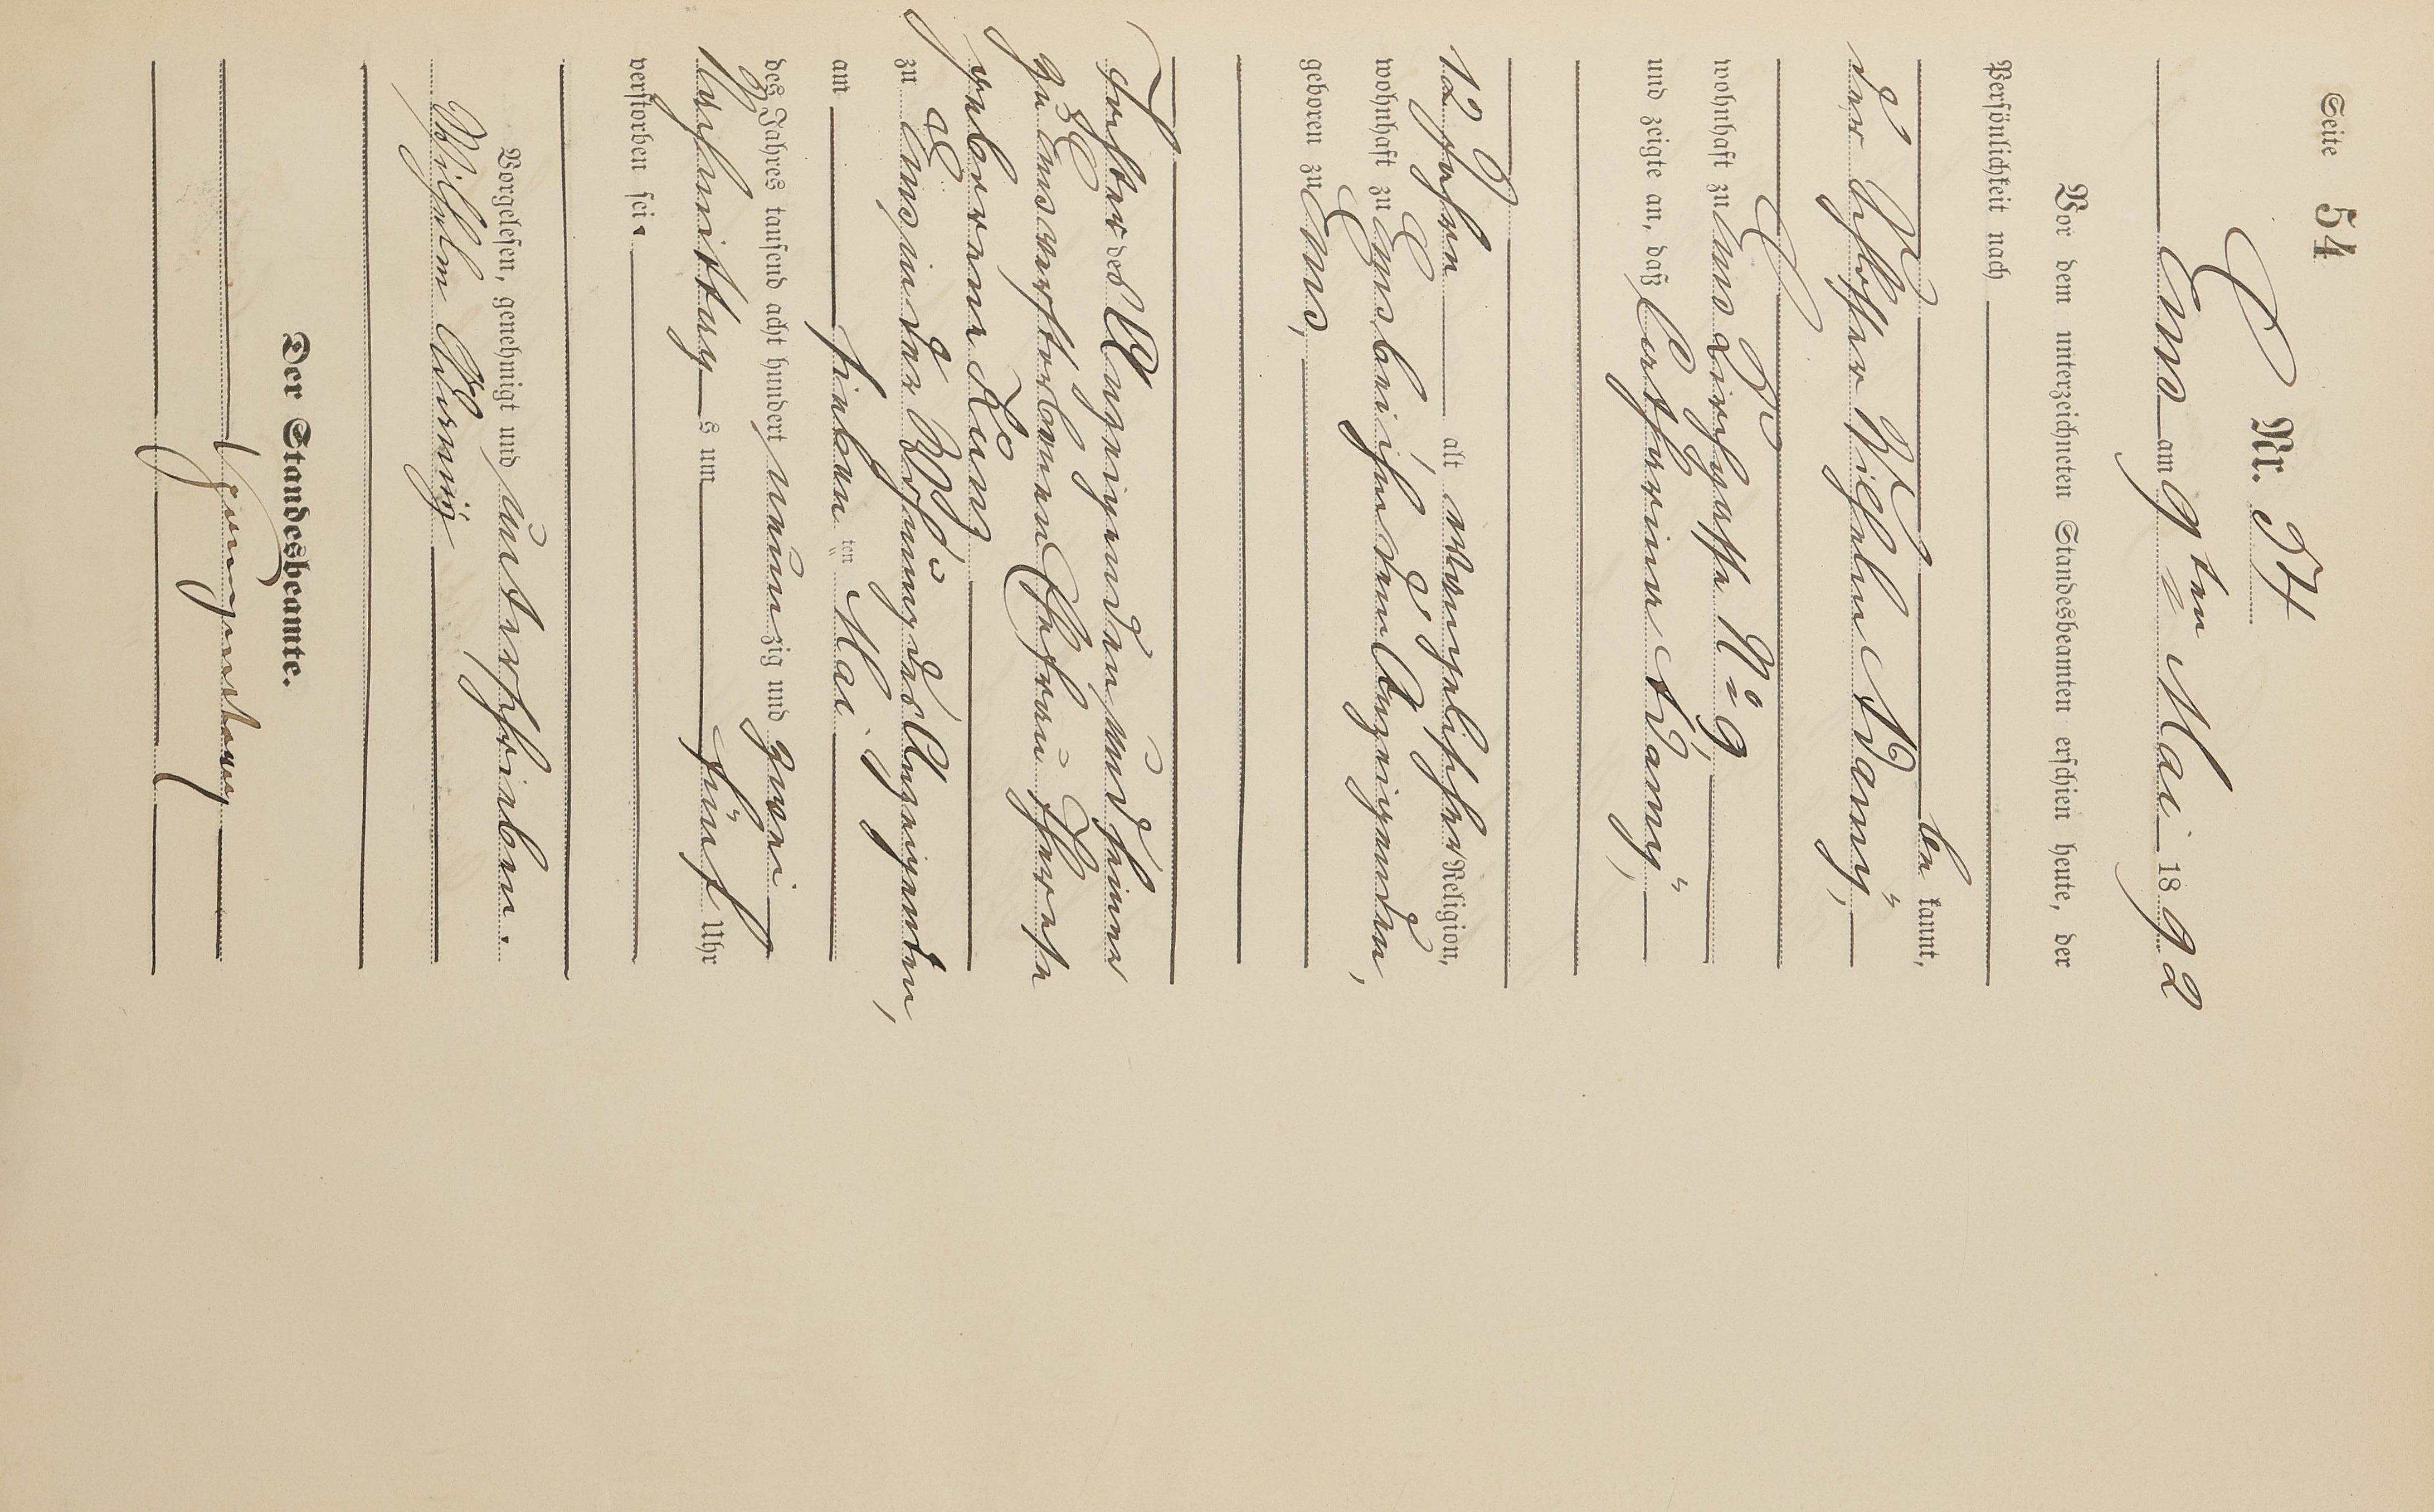 Seite 54
Nr. 54
Ems am 9ten Mai 1892
Vor dem unterzeichneten Standesbeamten erschien heute, der
Persönlichkeit nach
be kannt,
der Schlosser Wilhelm
wohnhaft zu Ems Kirchgasse No 9,
und zeigte an, daß Catharina
12 Jahre alt evangelischer Religion,
wohnhaft zu Ems bei ihm dem Anzeigenden,
geboren zu Ems,
Tochter des Anzeigenden und seiner
zu Ems verstorbenen Ehefrau Therese
geborene Kunz
zu Ems in der Wohnung des Anzeigenden,
am sieben ten Mai
des Jahres tausend acht hundert neunzig und zwei
Nachmittag s um fünf Uhr
verstorben sei.
Vorgelesen, genehmigt und unterschrieben.
Wilhelm
Der Standesbeamte.